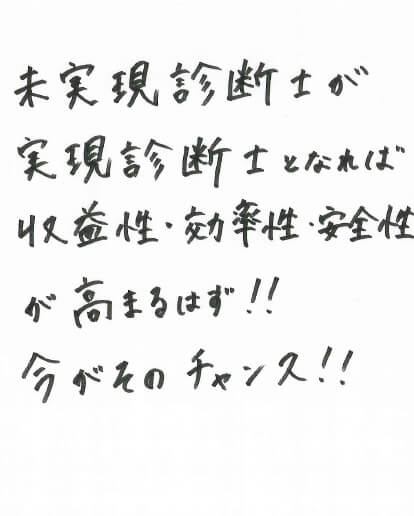 未実現診断士が
実現診断士となれば
収益性・効率性・安全性
が高まるはず!!
今がそのチャンス!!